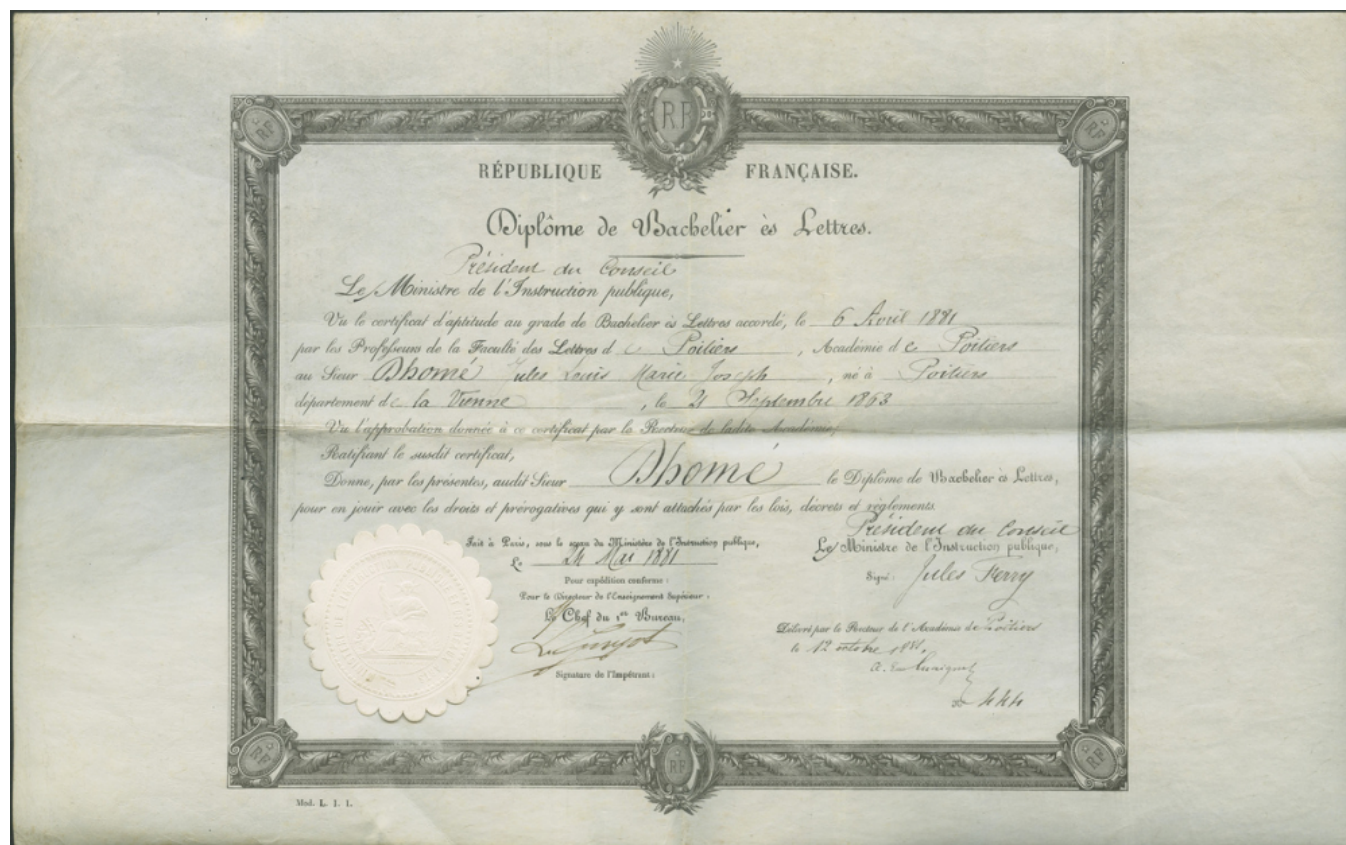 RF
RF
RF
RÉPUBLIQUE FRANÇAISE.
Diplôme de Bachelier ès Lettres.
Président du Conseil
Le Ministre de l'Instruction publique,
Vu le certificat d'aptitude au grade de Bachelier ès Lettres accordé, le 6 Avril 1881
par les Professeurs de la Faculté des Lettres de Poitiers, Académie de Poitiers
au Sieur Dhomé Jules Louis Marie Joseph, né à Poitiers
département de la Vienne, le 21 Septembre 1863
Vu l'approbation donnée à ce certificat par le Recteur de ladite Académie,
Ratifiant le susdit certificat,
Donne, par les présentes, audit Sieur Dhomé le Diplôme de Bachelier ès Lettres,
pour en jouir avec les droits et prérogatives qui y sont attachés par les lois, décrets et règlements.
Fait à Paris, sous le sceau du Ministère de l'Instruction publique,
Le 24 Mai 1881
Pour expédition conforme :
Pour le Directeur de l'Enseignement Supérieur :
Le Chef du 1er Bureau,
Signature de l'Impétrant :
Président du Conseil
Le Ministre de l'Instruction publique,
Signé : Jules Ferry
Délivré par le Recteur de l'Académie de Poitiers
le 12 octobre 1881.
444
RF
RF
RF
Mod. L. 1. 1.